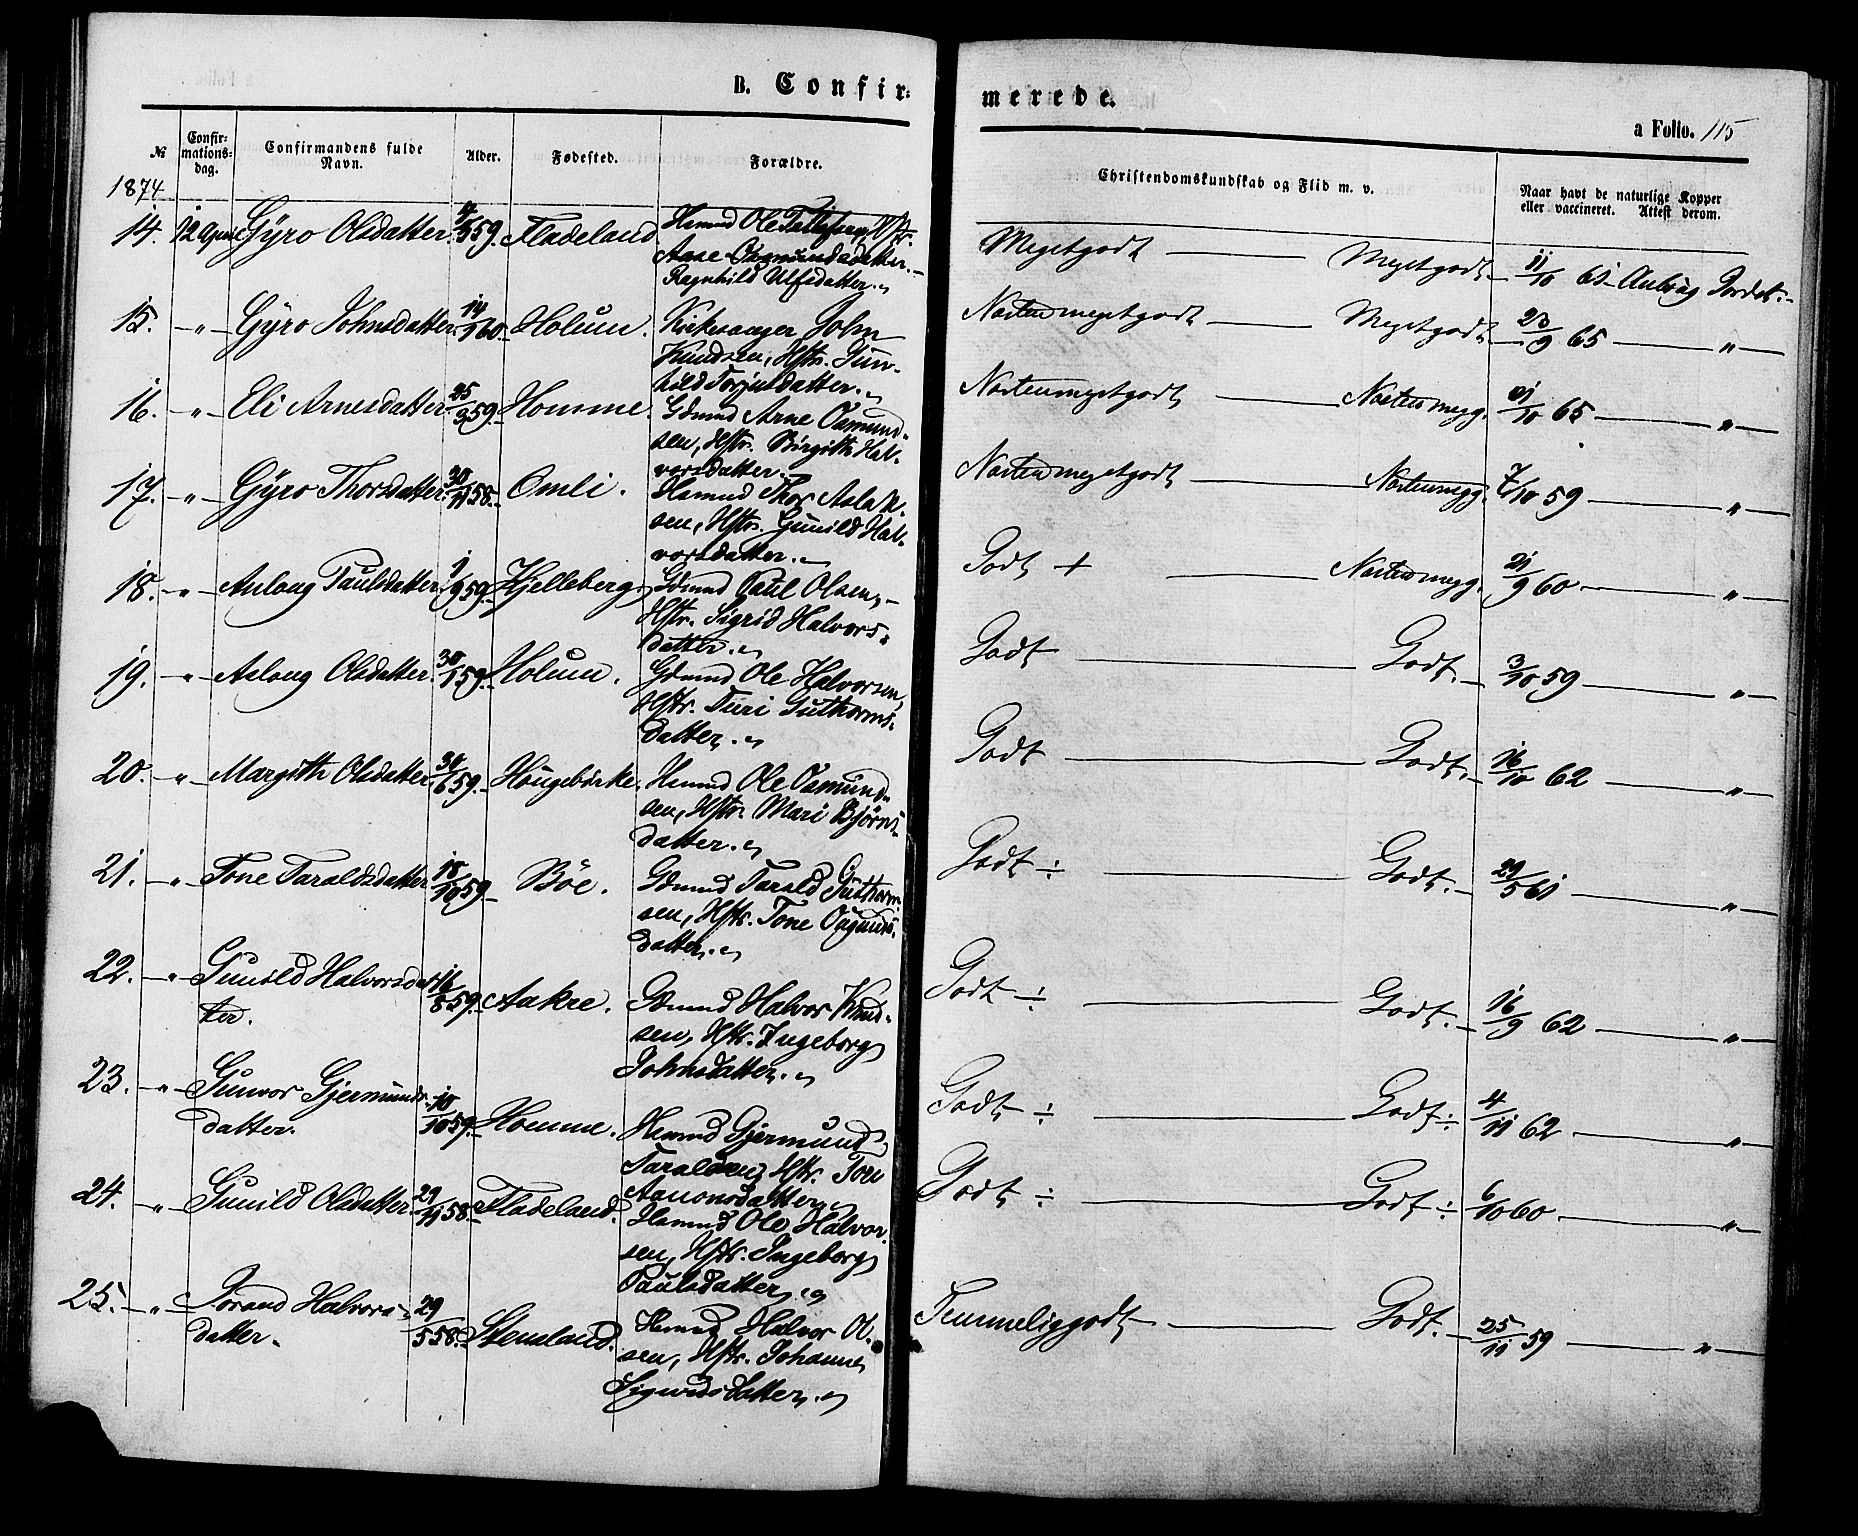 B. Confir=
merede.
a Folio. 115
№ Confir= mations= dag. Confirmandens fulde Navn. Alder. Fødested. Forældre. Christendomskundskab og Flid m. v. Naar havt de naturlige Kopper eller vaccineret. Attest derom.
1874
14. 12 April Gyro Olsdatter 4/5 59. Fladeland Hsmnd Ole
Aase Osmundsdatter.
Ragnhild Ulfsdatter. Megetgodt Megetgodt. 11/10 61
15. " Gyro Johnsdatter 14/1 60. Holum. Kirkesanger John
Knudsen, Hstr. Gun-
hild Torjulsdatter. Næstenmegetgodt Megetgodt 23/9 65 "
16. " Eli Arnesdatter 25/3 59. Homme. Gdmnd Arne Osmund-
sen, Hstr. Birgith Hal-
vorsdatter. Næstenmegetgodt Næstenmegg. 21/10 65 "
17. " Gyro Thorsdatter 30/11 58. Omli. Hsmnd Thor Aslak-
sen, Hstr. Gunild Hal-
vorsdatter. Næstenmegetgodt Næstenmegg. 7/10 59 "
18. " Aslong Paulsdatter 1/9 59. Kjelleberg Gdmnd Paul Olsen,
Hstr. Sigrid Halvors-
datter. Godt + Næstenmegg. 21/9 60 "
19. " Aslong Olsdatter 30/1 59. Holum. Gdmnd Ole Halvorsen,
Hstr. Turi Guthorms-
datter. Godt Godt. 3/10 59 "
20. " Margith Olsdatter 30/6 59. Hougebirke. Hsmnd Ole Osmund-
sen, Hstr. Mari Bjørns-
datter. Godt Godt. 16/10 62 "
21. " Tone Taraldsdatter 18/10 59 Bøe. Gdmnd Tarald Guthorm-
sen, Hstr. Tone Aagunds-
datter. Godt ÷ Godt. 29/5 61 "
22. " Gunild Halvorsdat-
ter. 16/8 59. Aakre. Gdmnd Halvor Knud-
sen, Hstr. Ingeborg
Johnsdatter. Godt ÷ Godt. 16/9 62 "
23. " Gunvor Gjermunds-
datter. 10/10 59. Homme. Hsmnd Gjermund
Taraldsen, Hstr. Tone
Aanonsdatter Godt ÷ Godt ÷ 4/11 62 "
24. " Gunild Olsdatter. 29/11 58. Fladeland. Hsmnd Ole Halvor-
sen, Hstr. Ingeborg
Paulsdatter. Godt ÷ Godt ÷ 6/10 60 "
25. " Jorand Halvors-
datter. 29/5 58. Stensland. Hsmnd Halvor Ol-
sen, Hstr. Johanne
Sigurdsdatter. Temmeliggodt Godt. 25/11 59 "